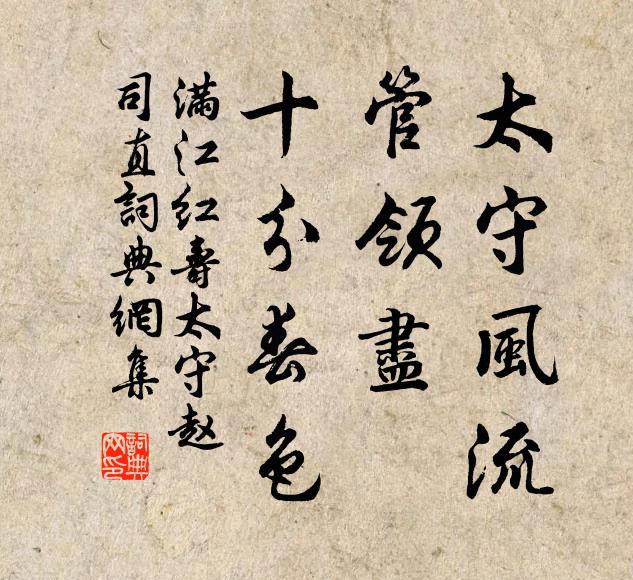 太守風流
管領盡
十分春色
滿江紅壽太守赵
司直詞典網集
詞典
网印